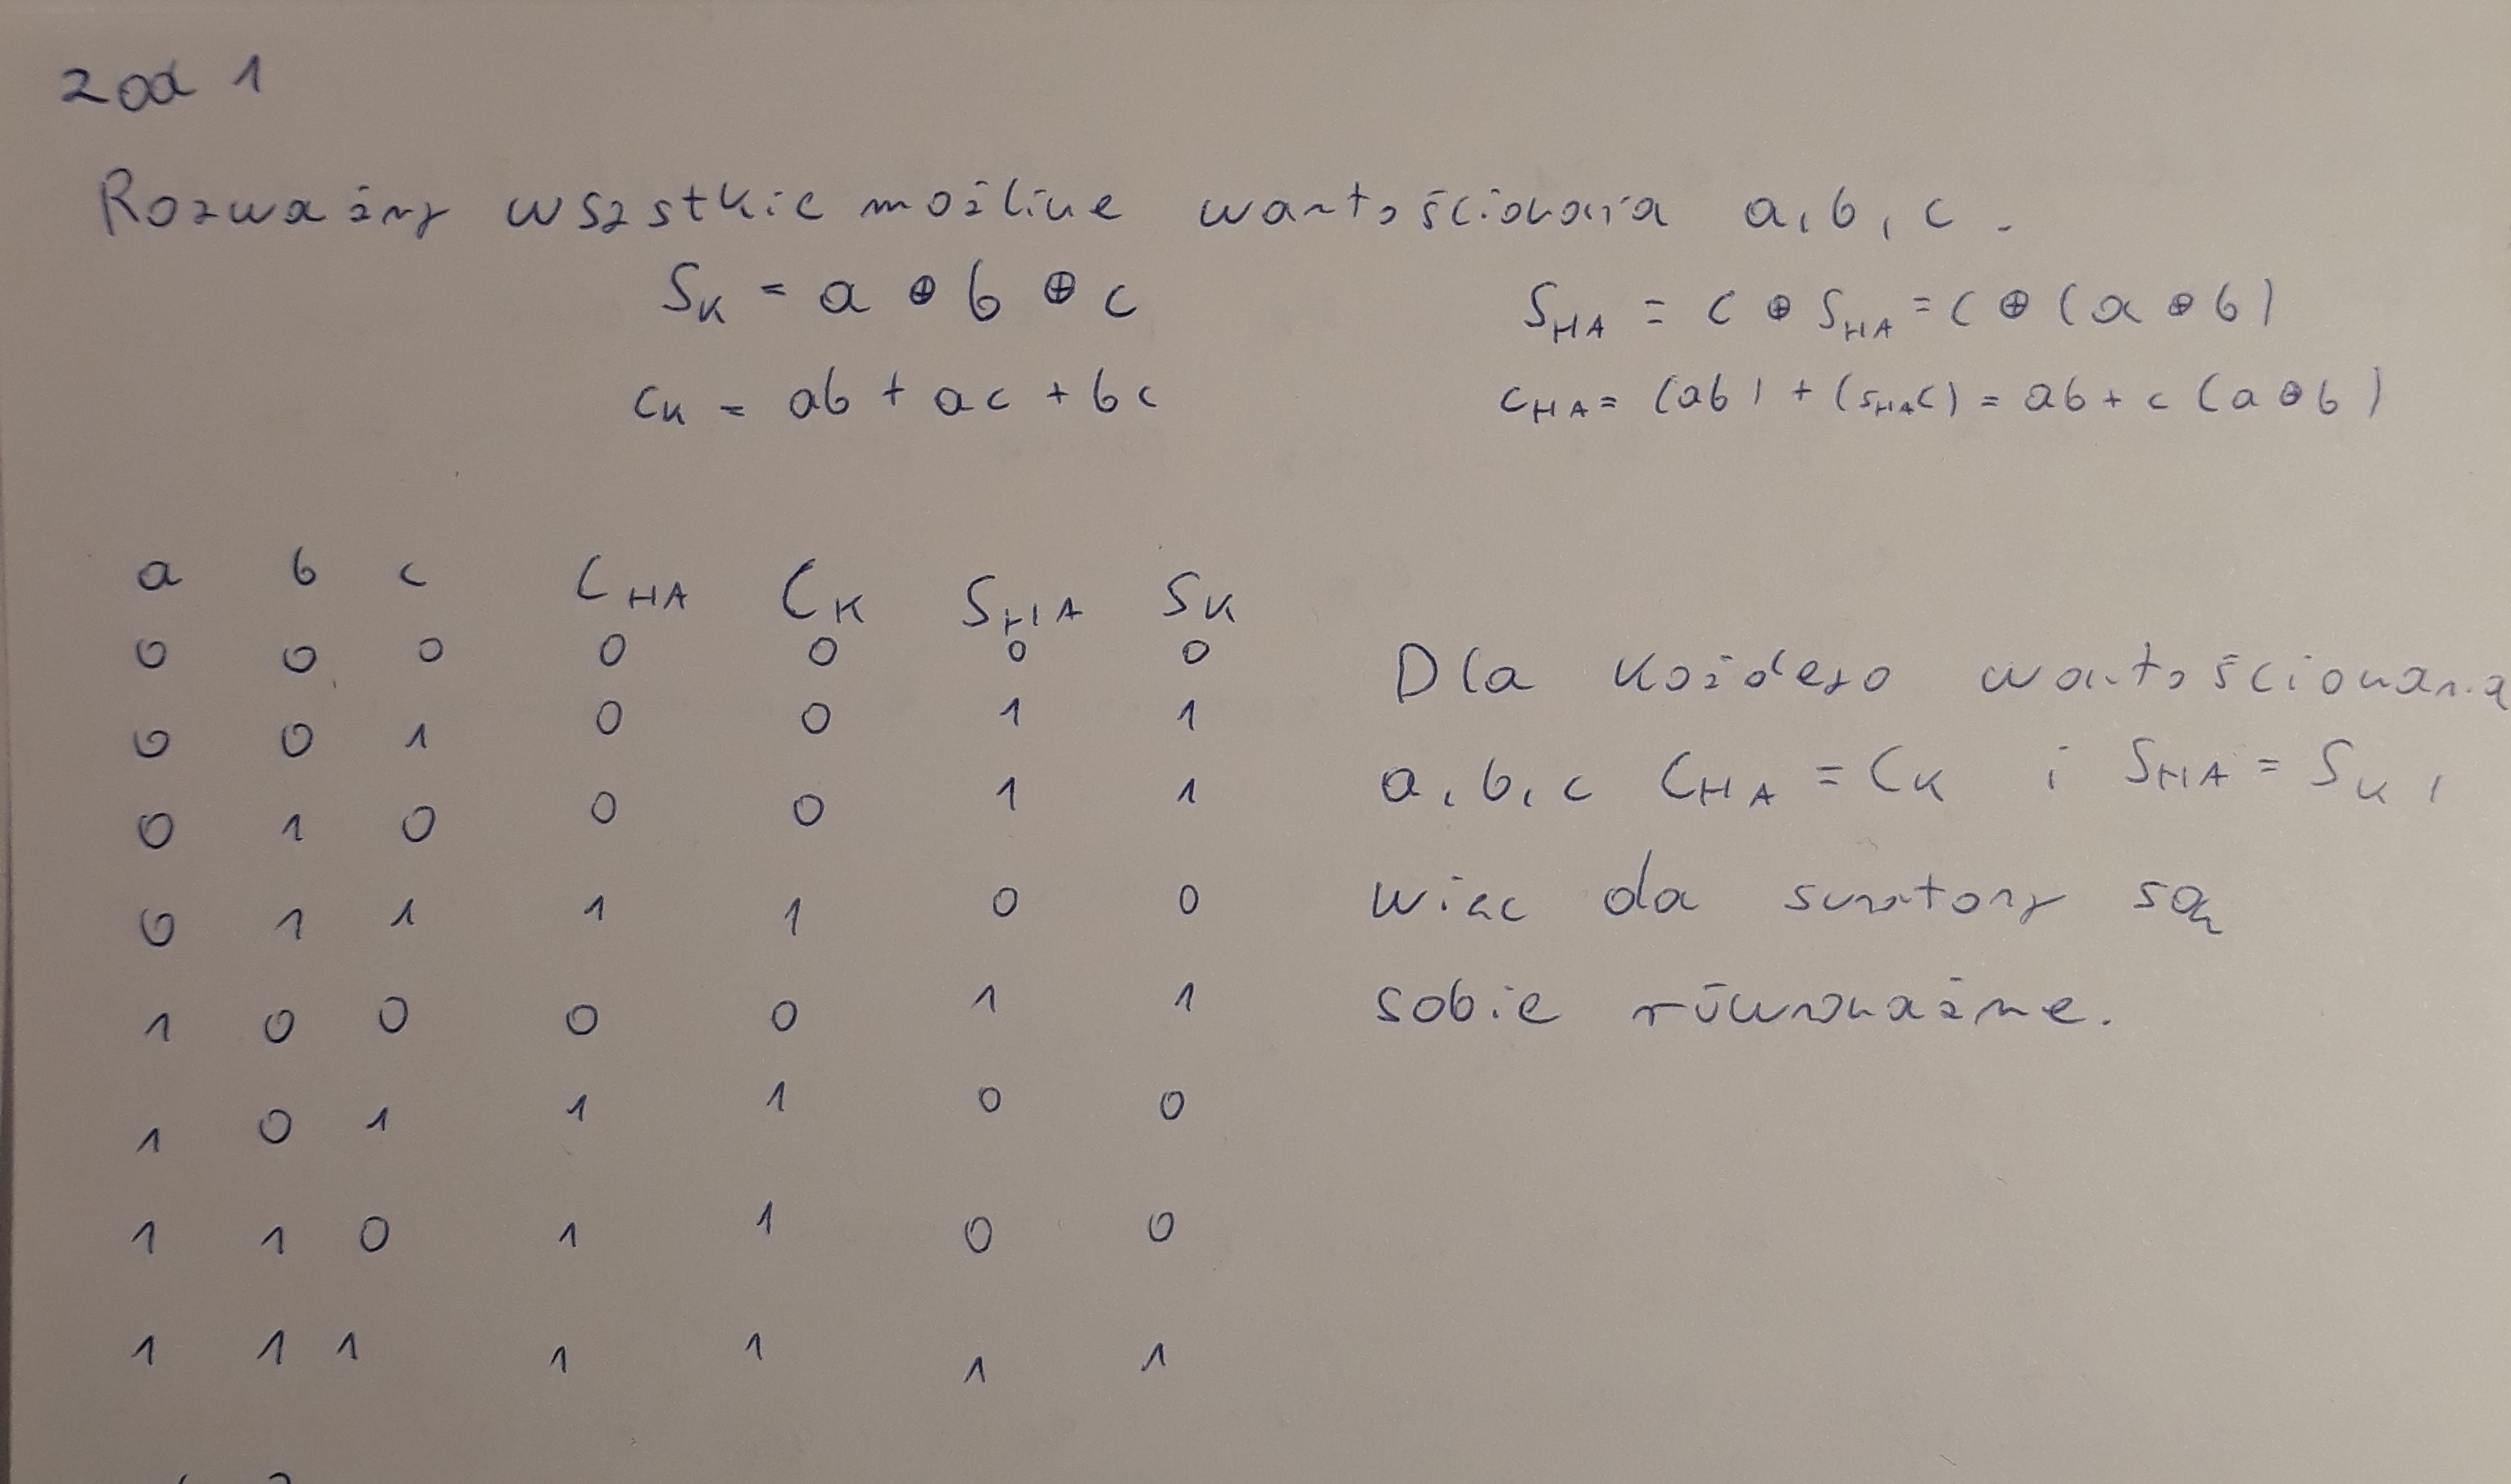 zad 1
Rozważmy wszstkie możliwe wartościowania a, b, c.
S_K = a ⊕ b ⊕ c
S_HA = c ⊕ S_HA = c ⊕ (a ⊕ b)
c_K = ab + ac + bc
c_HA = (ab) + (s_HA c) = ab + c (a ⊕ b)
a b c C_HA C_K S_HA S_K
0 0 0 0 0 0 0
0 0 1 0 0 1 1
0 1 0 0 0 1 1
0 1 1 1 1 0 0
1 0 0 0 0 1 1
1 0 1 1 1 0 0
1 1 0 1 1 0 0
1 1 1 1 1 1 1
Dla każdego wartościowania
a, b, c C_HA = C_K i S_HA = S_K,
więc da sumatory są
sobie równoważne.